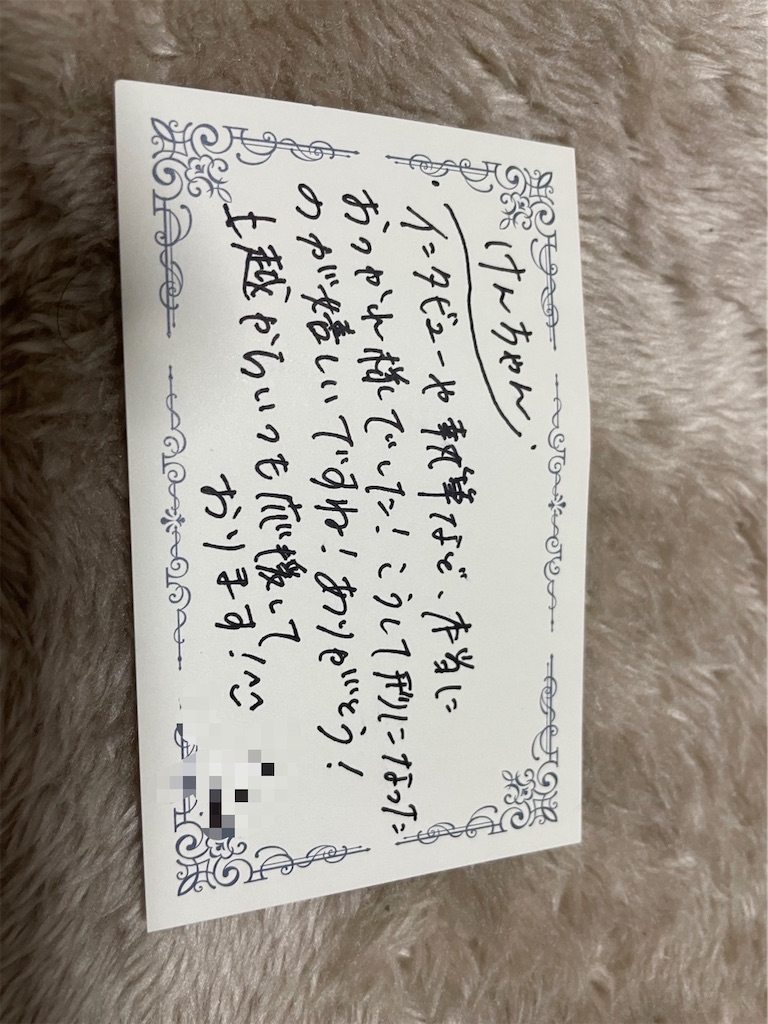 けんちゃん、
インタビューや執筆など、本当に
おつかれ様でした!こうして形になった
のが嬉しいですね!ありがとう!
上越からいつも応援して
おります!^^